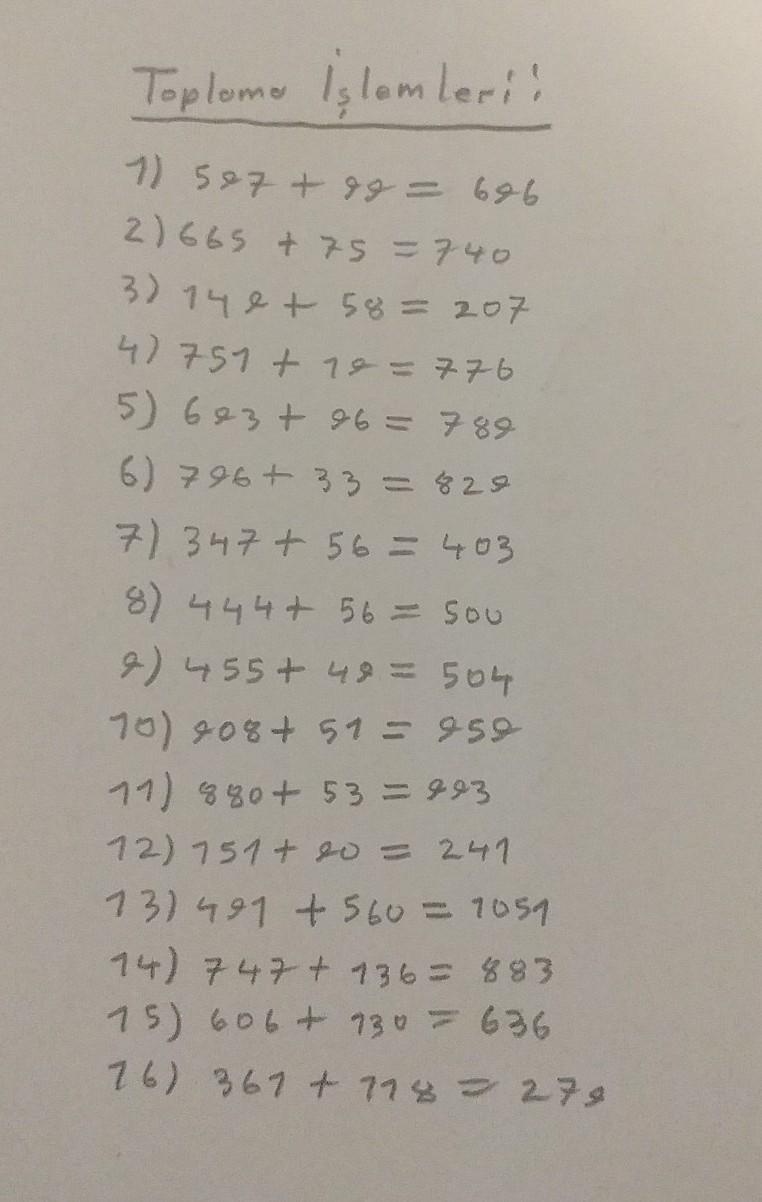 Toplama İşlemleri!
1) 597 + 99 = 696
2) 665 + 75 = 740
3) 149 + 58 = 207
4) 751 + 19 = 776
5) 693 + 96 = 789
6) 796 + 33 = 829
7) 347 + 56 = 403
8) 444 + 56 = 500
9) 455 + 49 = 504
10) 908 + 51 = 959
11) 880 + 53 = 993
12) 151 + 90 = 241
13) 491 + 560 = 1051
14) 747 + 136 = 883
15) 606 + 130 = 636
16) 361 + 118 = 279